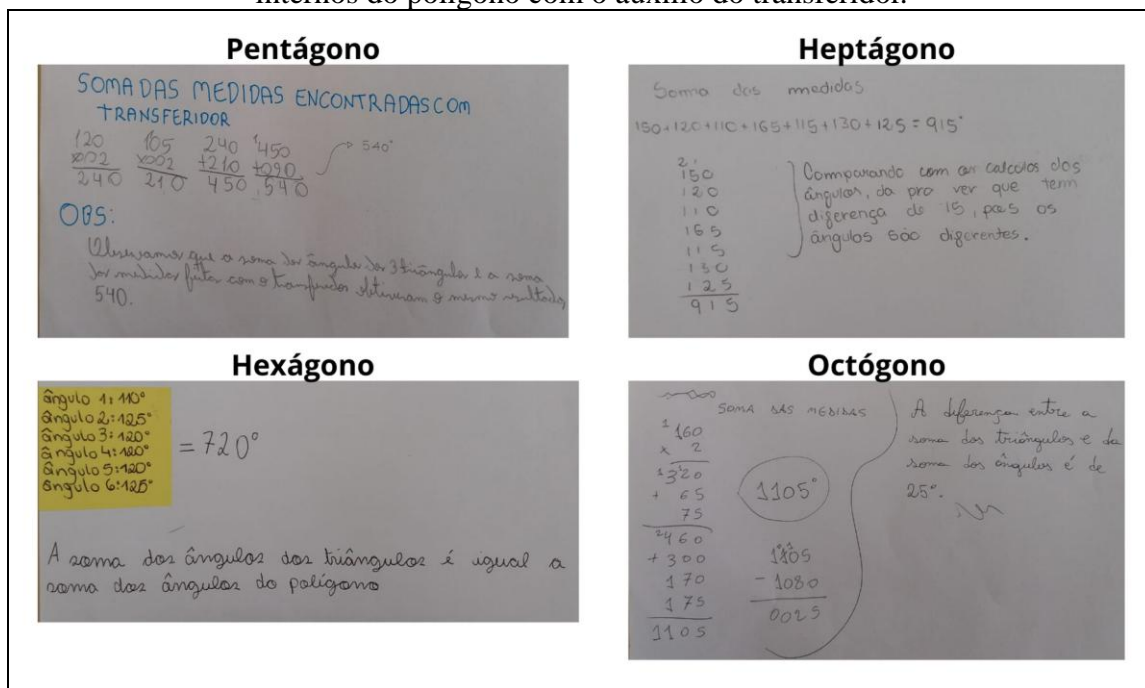 internos do polígono com o auxílio do transferidor.
Pentágono
SOMA DAS MEDIDAS ENCONTRADAS COM
TRANSFERIDOR
120 105 240 450
x002 x002 +210 +090
240 210 450 540
540°
OBS:
Observamos que a soma dos ângulo dos 3 triângulos e a soma
das medidas feita com o transferidor obtiveram o mesmo resultado
540.
Heptágono
Soma das medidas
150+120+110+165+115+130+125=915°
2 1
150
120
110
165
115
130
125
915
Commparando com os calcolos dos
ângulos, da pra ver que tem
diferença de 15, pois os
ângulos são diferentes.
Hexágono
ângulo 1: 110°
ângulo 2: 125°
ângulo 3: 120°
ângulo 4: 120°
ângulo 5: 120°
ângulo 6: 125°
= 720°
A soma dos ângulos dos triângulos é igual a
soma dos ângulos do polígono
Octógono
SOMA DAS MEDIDAS
1
160
x 2
320
+ 65
75
460
+ 300
170
175
1105
1105°
1105
- 1080
0025
A diferença entre a
soma dos triângulos e da
soma dos ângulos é de
25°.